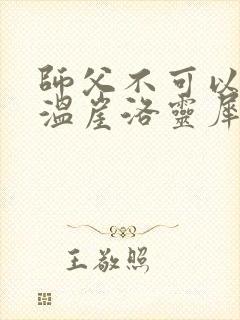 師父不可以
溫崖洛靈犀
王敬照